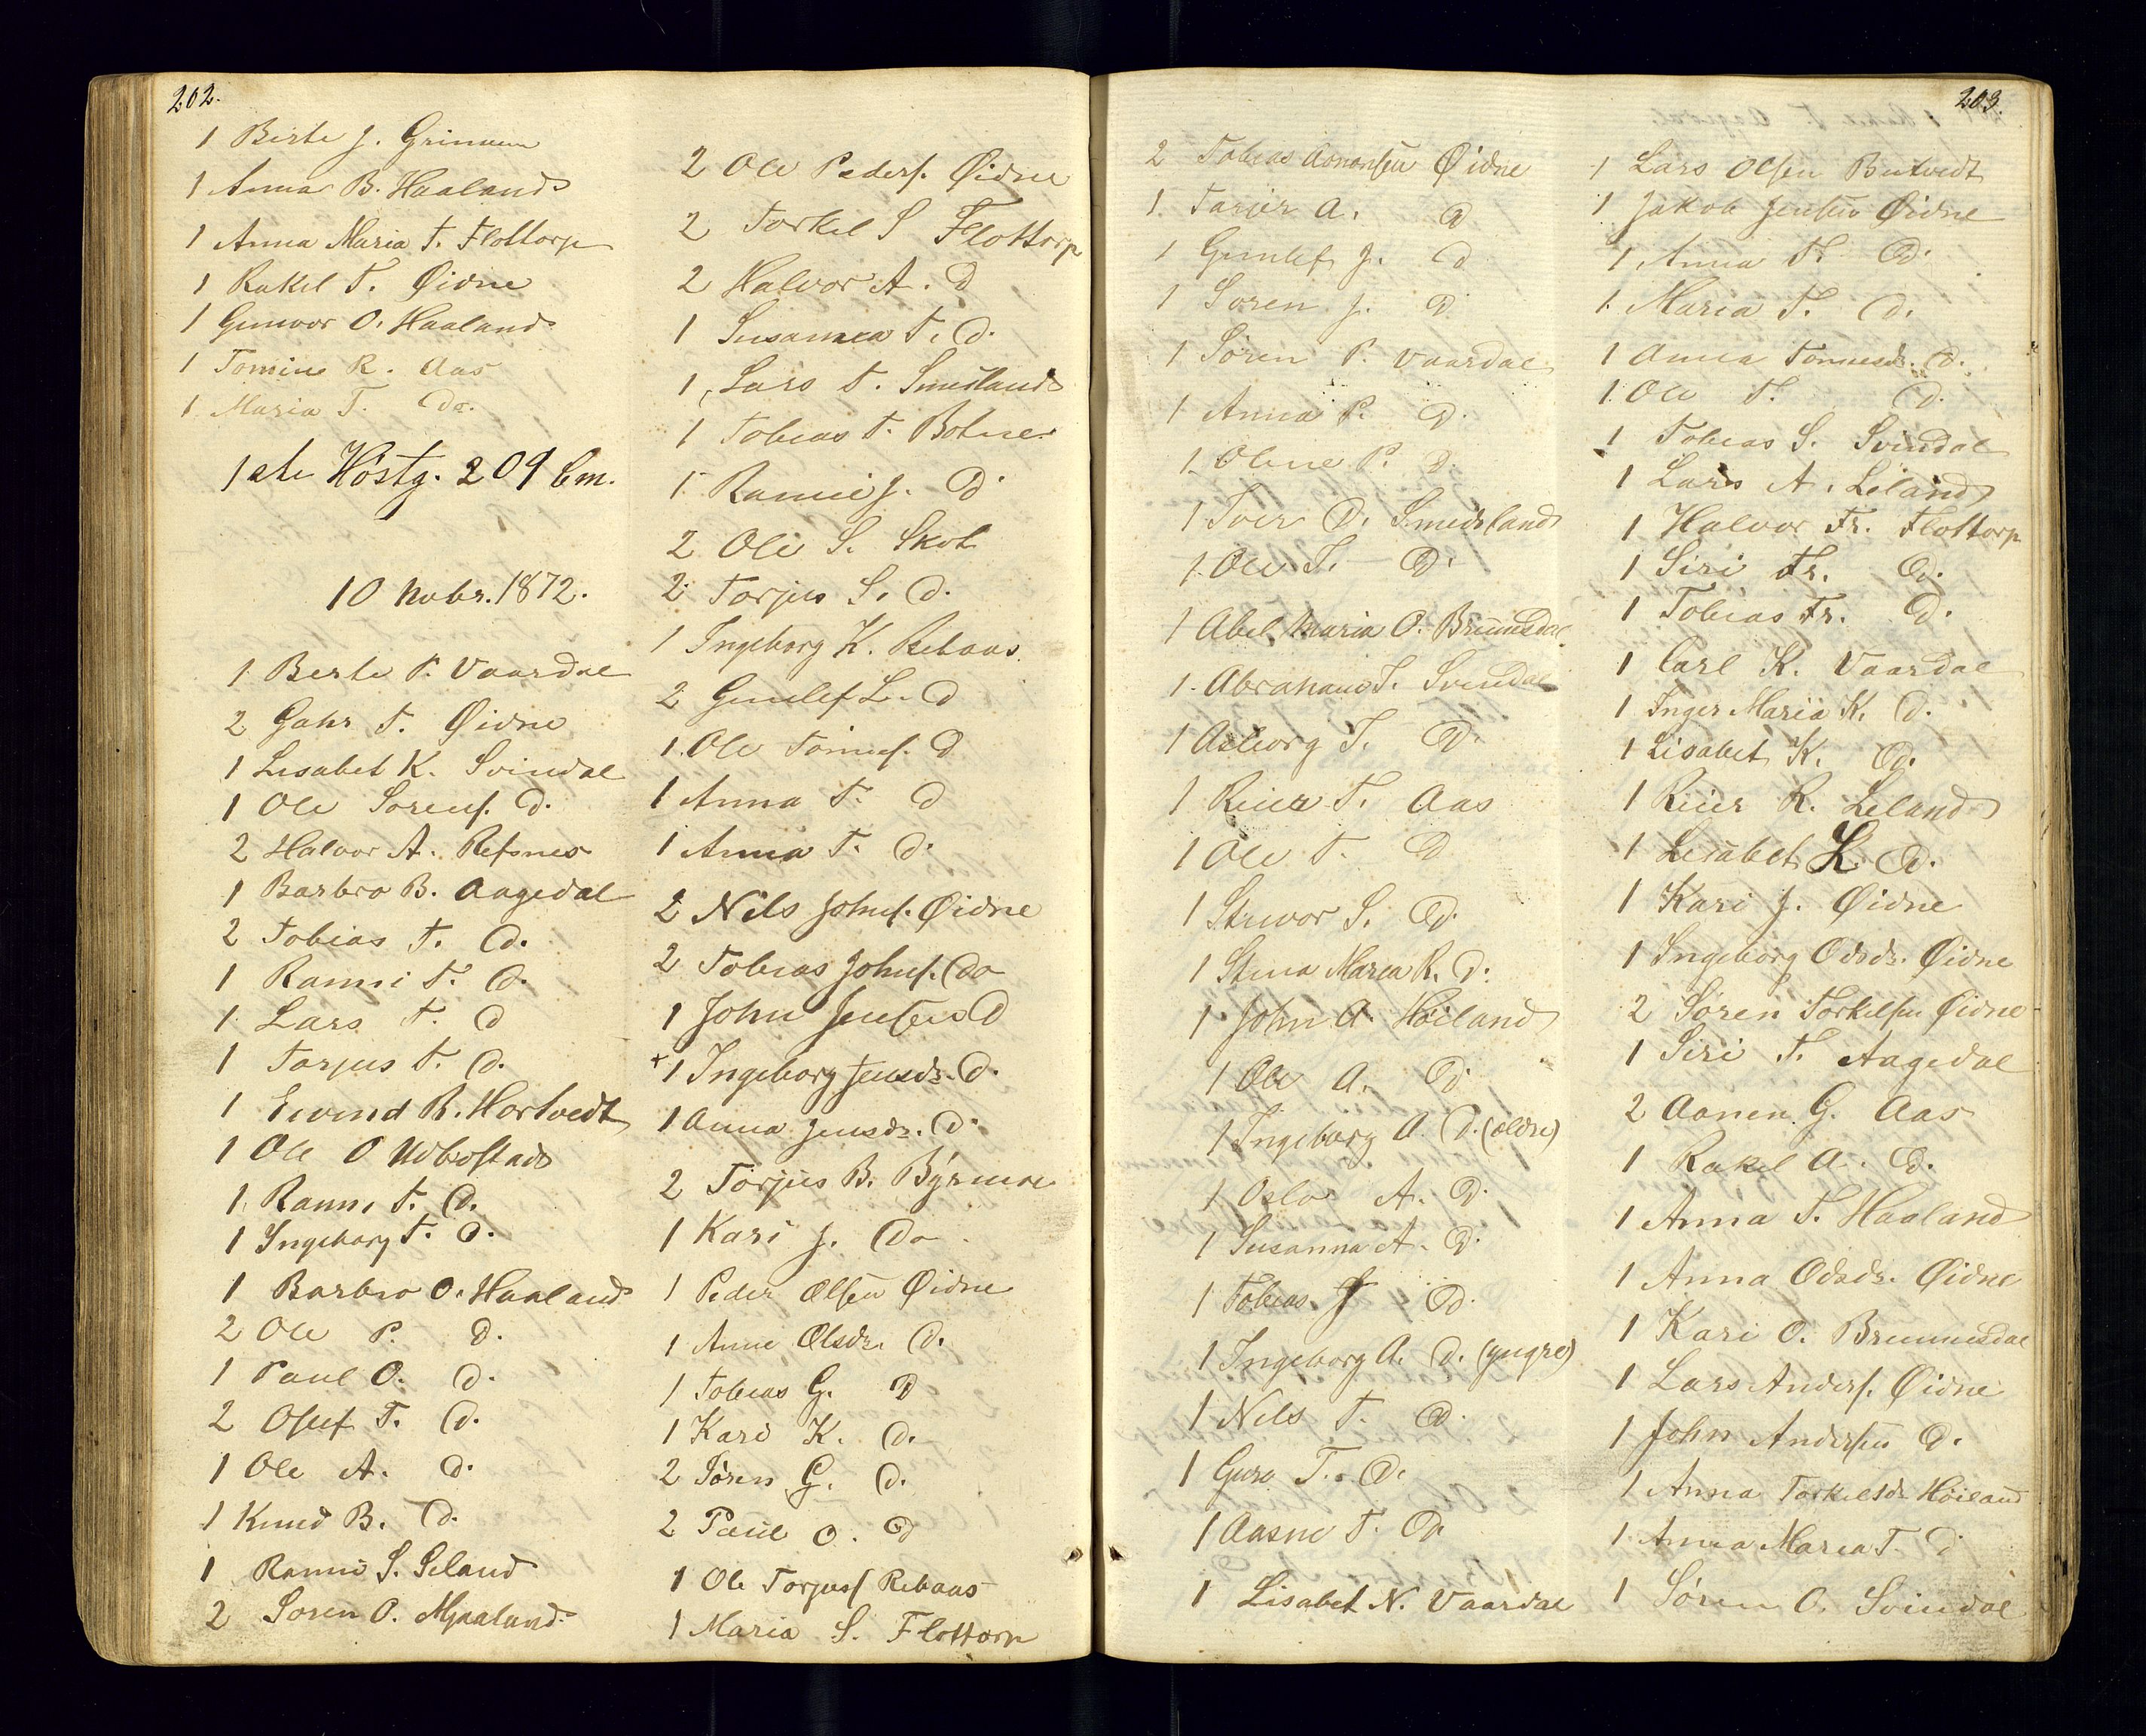 202.
1 Berte J. Grimnen
1 Anna B. Haaland
1 Anna Maria T. Flottorp
1 Rakel T. Øidne
1 Gunvor O. Haaland
1 Tomine R. Aas
1 Maria T. Do.
1ste Höstg. 209 Cm.
10 Nobr. 1872.
1 Berte P. Vaardal
2 Gahr T. Øidne
1 Lisabet K. Svindal
1 Ole Sörens. D.
2 Halvor A. Refsnes
1 Barbro B. Aagedal
2 Tobias T. D.
1 Ranni T. D.
1 Lars T. D
1 Torjus T. D.
1 Eivind R. Hortvedt
1 Ole O Udbostad
1 Ranni T. D.
1 Ingeborg T. D.
1 Barbro O. Haaland
2 Ole P. D.
1 Paul O. D.
2 Osuf T. D.
1 Ole A. D.
1 Knud B. D.
1 Ranni S. Leland
2 Soren O. Mjaaland
2 Ole Peders. Øidne
2 Torkel S Flottorp
2 Halvor A. D
1 Susanna T. D.
1 Lars T. Smedsland
1 Tobias T. Botne
1 Ranni J. D
2 Ole S. Skot
2 Torjus S. D.
1 Ingeborg K. Rebaas
2 Gunlef L. D
1. Ole Tönnes. D
1 Anna T. D
1 Anna T. D.
2 Nils Johns. Øidne
2 Tobias Johns. Do
1 John Jensen D
+1 Ingeborg Jensdr. D.
1 Anna Jensdr. D.
2 Torjus B. Byrmoe
1 Kari J. Do
1 Peder Olsen Øidne
1 Anne Olsdr. D.
1 Tobias G. D
1 Kari K. D.
2 Sören G. D.
2 Paul O. D
1 Ole Torjuss Rebaas
1 Maria S. Flottorp
203.
2 Tobias Aanonsen Øidne
1. Tarjer A. D
1 Gunlef J. D
1 Soren J. D
1 Sören P. Vaardal
1 Anna P. D.
1 Oline P. D.
1 Iver O. Smedsland
1. Ole T. D.
1 Abel Maria O. Brunnesdal
1. Abraham T. Svindal
1 Asborg T. D.
1 Reier T. Aas
1 Ole T. D
1 Stuvor S. D.
1 Stina Maria R. D.
1 John A. Höiland
1 Ole A. D
1 Ingeborg A. D. (ældre)
1 Oslo A. D.
1 Susanna A. D.
1 Tobias J D.
1 Ingeborg A. D. (yngre)
1 Nils T. D.
1 Guro T. D.
1 Aasne T. D.
1 Lisabet N. Vaardal
1 Lars Olsen Butvedt
1 Jakob Jensen Øidne
1 Anna T. D.
1. Maria T. D.
1 Anna Tönnesdr. D.
1. Ole T. D.
1 Tobias S. Svindal
1 Lars A. Leland
1 Halvor Fr. Flottorp
1 Siri Fr. D.
1 Tobias Fr. D.
1 Carl K. Vaardal
1 Inger Maria K. D.
1 Lisabet K. D.
1 Reier R. Leland
1 Lisabet L. D.
1 Kari J. Øidne
1 Ingeborg Odsdr. Øidne
2 Sören Torkilsen Øidne
1 Siri T. Aagedal
2 Aanen G. Aas
1 Rakel A. D.
1 Anna T. Haaland
1 Anna Odsdr. Øidne
1 Kari O. Brunnesdal
1 Lars Anders. Øidne
1 John Andersen D.
1 Anna Torkelsd. Höiland
1 Anna Maria T. D
1 Sören O. Svindal